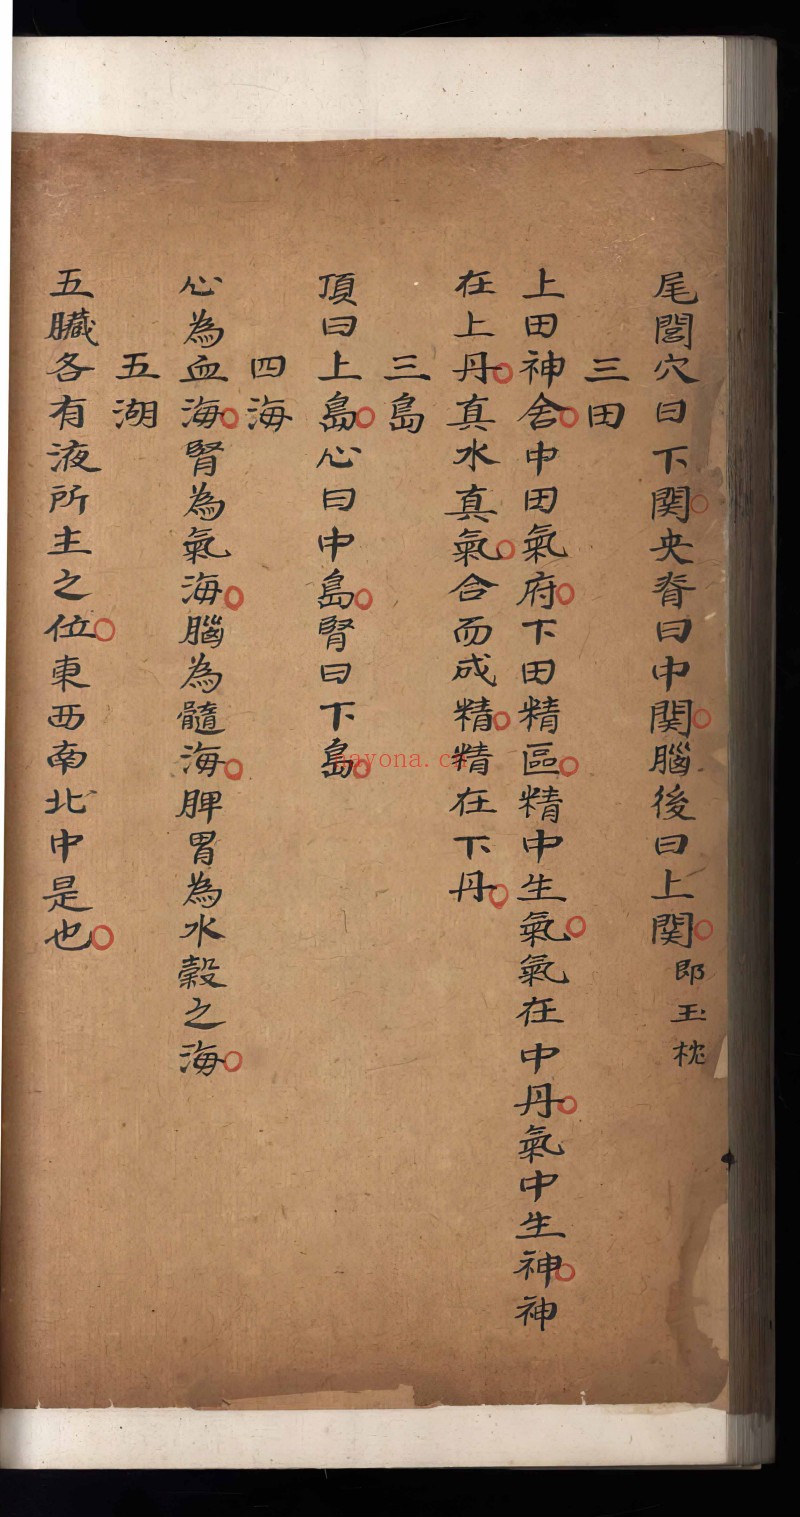 尾閭穴曰下関夾脊曰中関腦後曰上関即玉枕
三田
上田神舍中田氣府下田精區精中生氣氣在中丹氣中生神神
在上丹真水真氣合而成精精在下丹
三島
頂曰上島心曰中島腎曰下島
四海
心為血海腎為氣海腦為髓海脾胃為水穀之海
五湖
五臟各有液所主之位東西南北中是也
nayona.cn